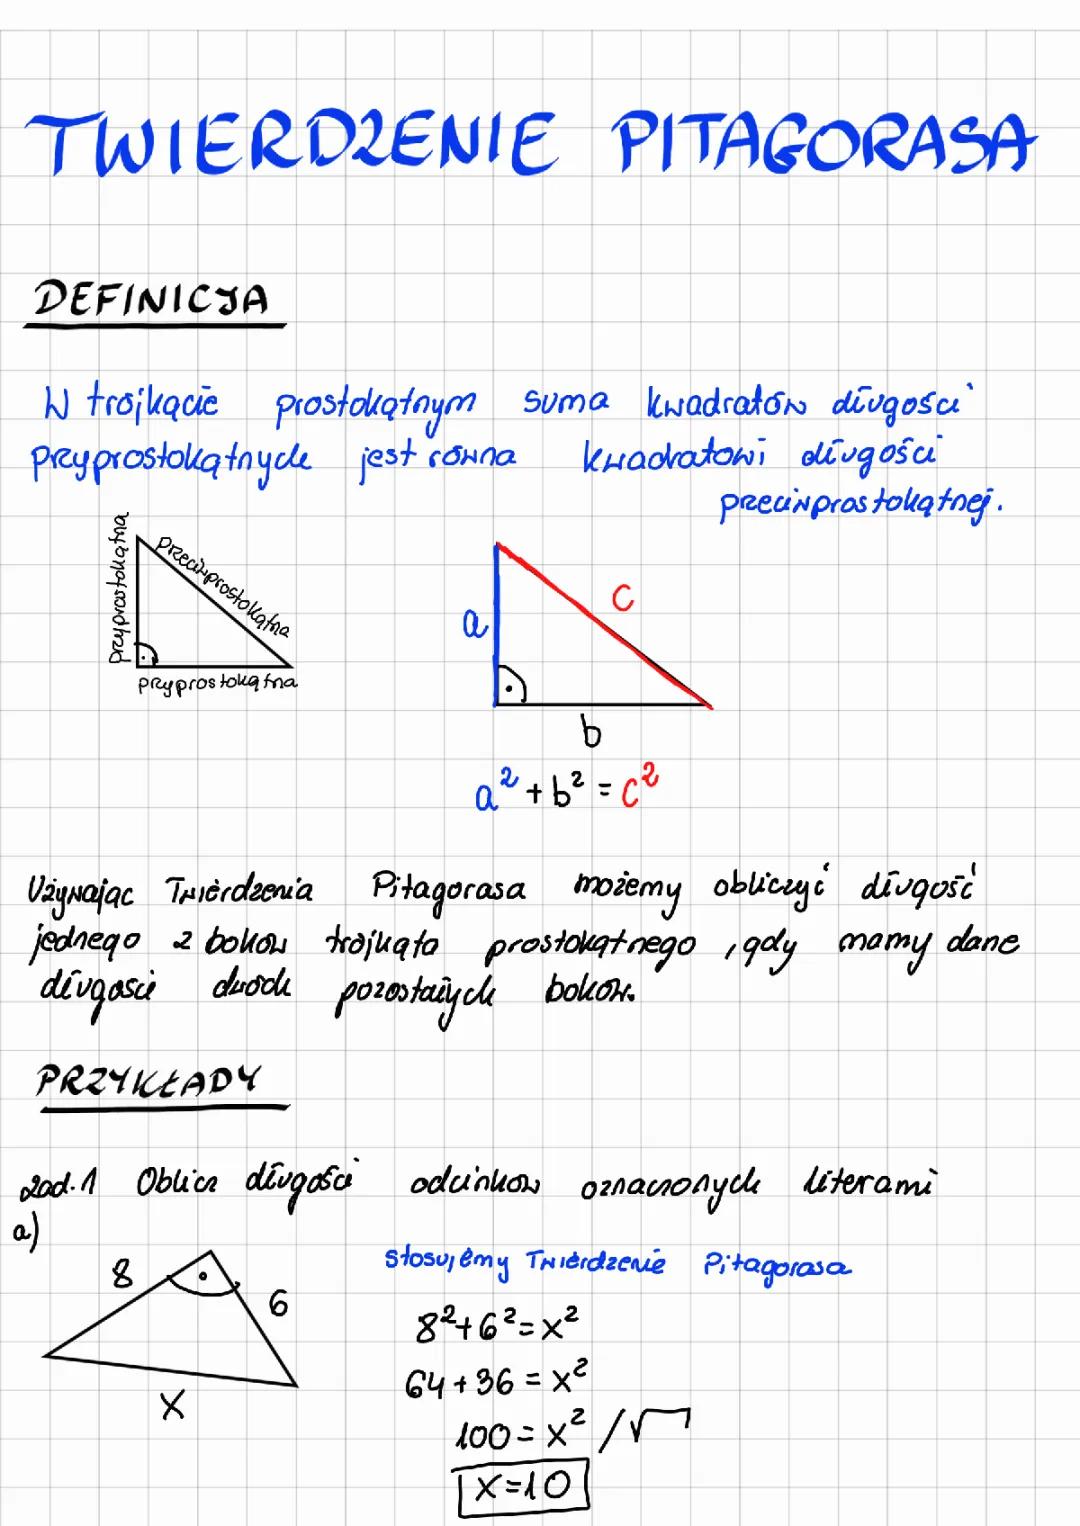 TWIERDZENIE PITAGORASA
DEFINICJA
W trójkącie prostokątnym suma kwadratów długości
przyprostokątnych jest równa kwadratowi długości
przeciwprostokątnej.
przyprostokątna
przeciwprostokątna
przyprostokątna
a
c
b
a²+b²=c²
Używając Twierdzenia Pitagorasa możemy obliczyć długość
jednego z boków trójkąta prostokątnego, gdy mamy dane
długości dwóch pozostałych boków.
PRZYKŁADY
zad.1 Oblicz długości odcinków oznaczonych literami
a)
8
6
x
Stosujemy Twierdzenie Pitagorasa
8²+6²=x²
64+36=x²
100=x² /√
x=10